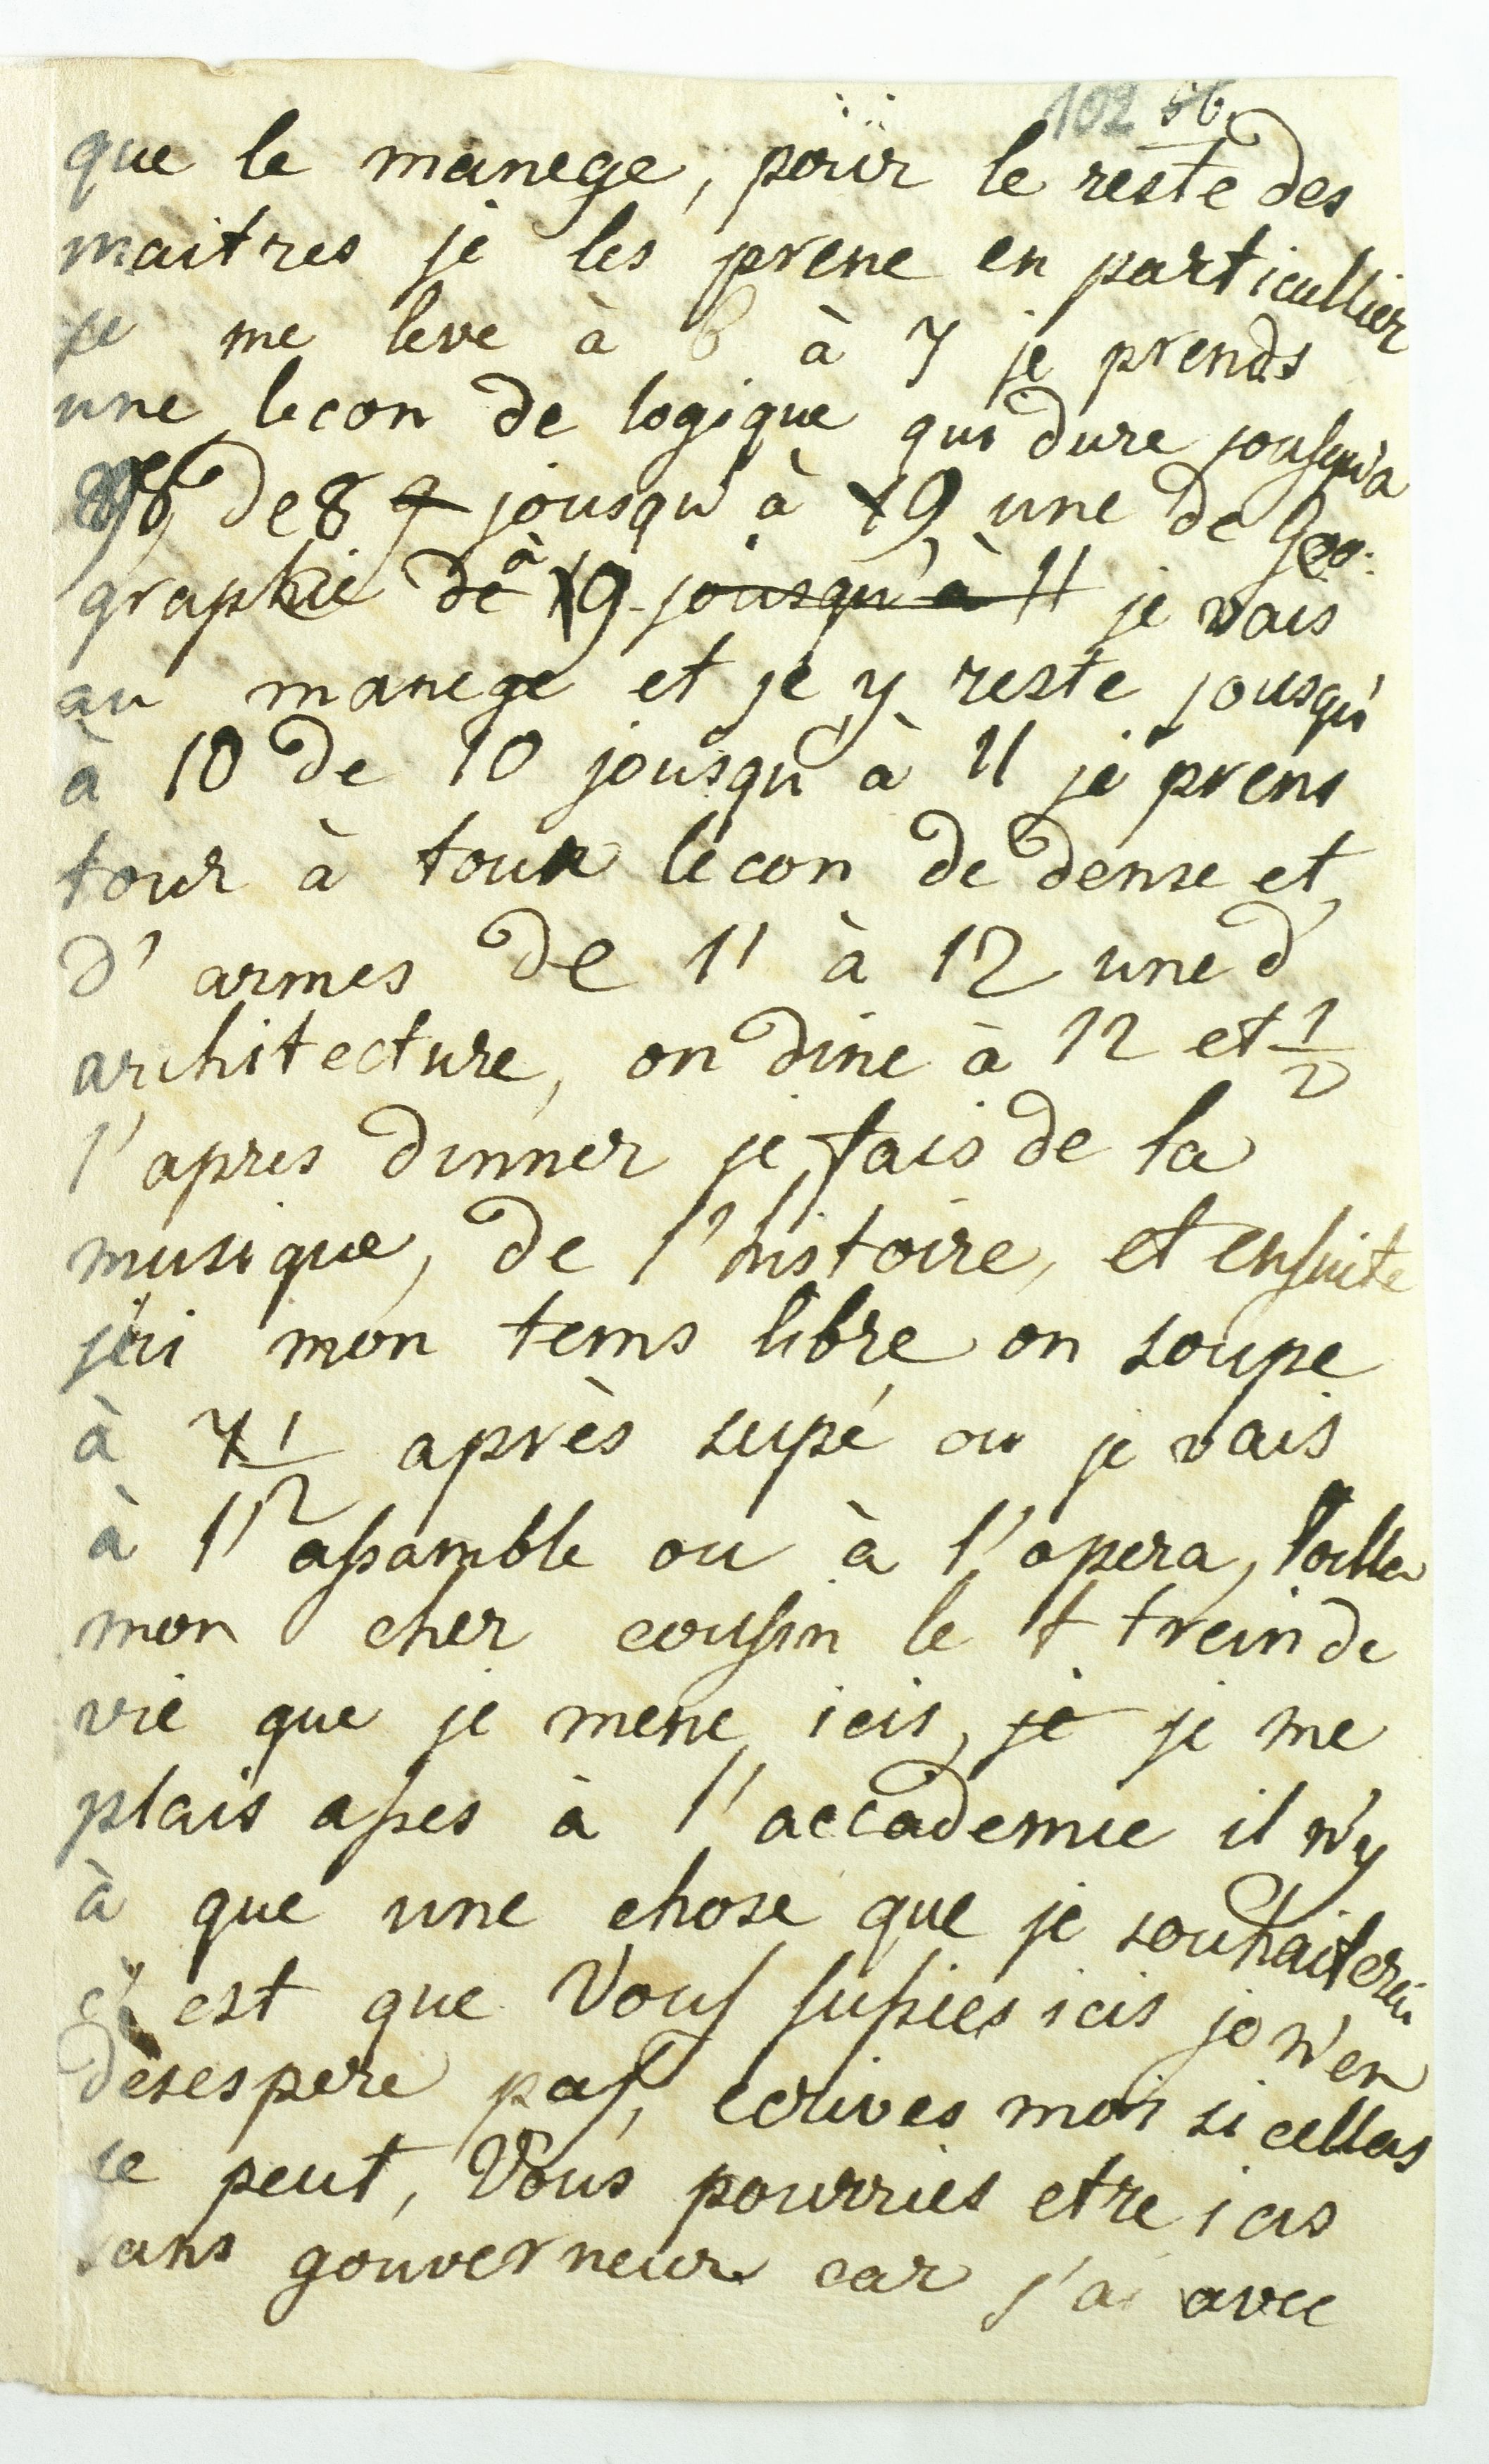 102 56
que le manege, poür le reste des
maitres je les prene en particullier
je me leve à 6 à 7 je prends
une lecon de logique qui dure jousqu'a
8 de 8 jousqu'à 9 une de Geo-
graphie à 9 jousqu'à 11 je vais
au manege et je y reste jousqu'
à 10 de 10 jousqu'à 11 je prens
tour à tour lecon de dense et
d'armes de 11 à 12 une d'
architecture, on dine à 12 et 1/2
l'apres dinner je fais de la
musique, de l'histoire, et ensuite
j'ai mon tems libre on soupe
à 7 1/2 après supé ou je vais
à l'assamble ou à l'opera, Voilla
mon cher cousin le t trein de
vie que je mene icis, je je me
plais asses à l'accademie il n'y
à que une chose que je souhaiterai
c'est que Vous fussies icis je n'en
desespere pas, ecrives moi si cellas
se peut, Vous pourries etre icis
sans gouverneur car j'ai avec